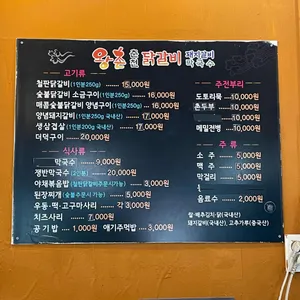 왕초 춘천 닭갈비 돼지갈비 막국수
고기류
철판닭갈비(1인분250g) ...... 15,000원
숯불닭갈비 소금구이(1인분250g) ...... 16,000원
매콤숯불닭갈비 양념구이(1인분250g) ...... 16,000원
양념돼지갈비(1인분250g 국내산) ...... 17,000원
생삼겹살(1인분200g 국내산) ...... 17,000원
더덕구이 ...... 20,000원
식사류
막국수 ...... 9,000원
쟁반막국수(2인분) ...... 20,000원
야채볶음밥(철판닭갈비주문시가능) ...... 3,000원
된장찌개(숯불주문시 가능) ...... 5,000원
우동·떡·고구마사리 ...... 각 3,000원
치즈사리 ...... 7,000원
공기밥 ...... 1,000원 애기주먹밥 ...... 3,000원
주전부리
도토리묵 ...... 10,000원
촌두부 ...... 10,000원
10,000원
메밀전병 ...... 10,000원
주류
소주 ...... 5,000원
맥주 ...... 5,000원
막걸리 ...... 5,000원
음료수 ...... 2,000원
쌀·배추김치·닭(국내산)
돼지갈비(국내산), 고추가루(중국산)